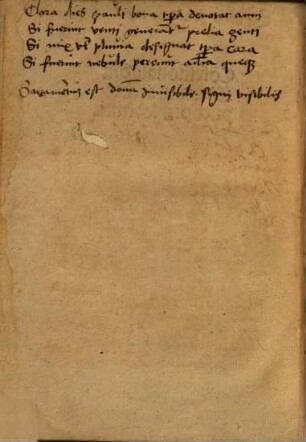 Clara dies pauli bona tpa denotat anni
Si fuerint venti generatr prelia genti
Si nix vl pluvia designat tpa cara
Si fuerint nebule pereunt aīalia queqz
Sacramentū est donū Invisibile signū visibilis